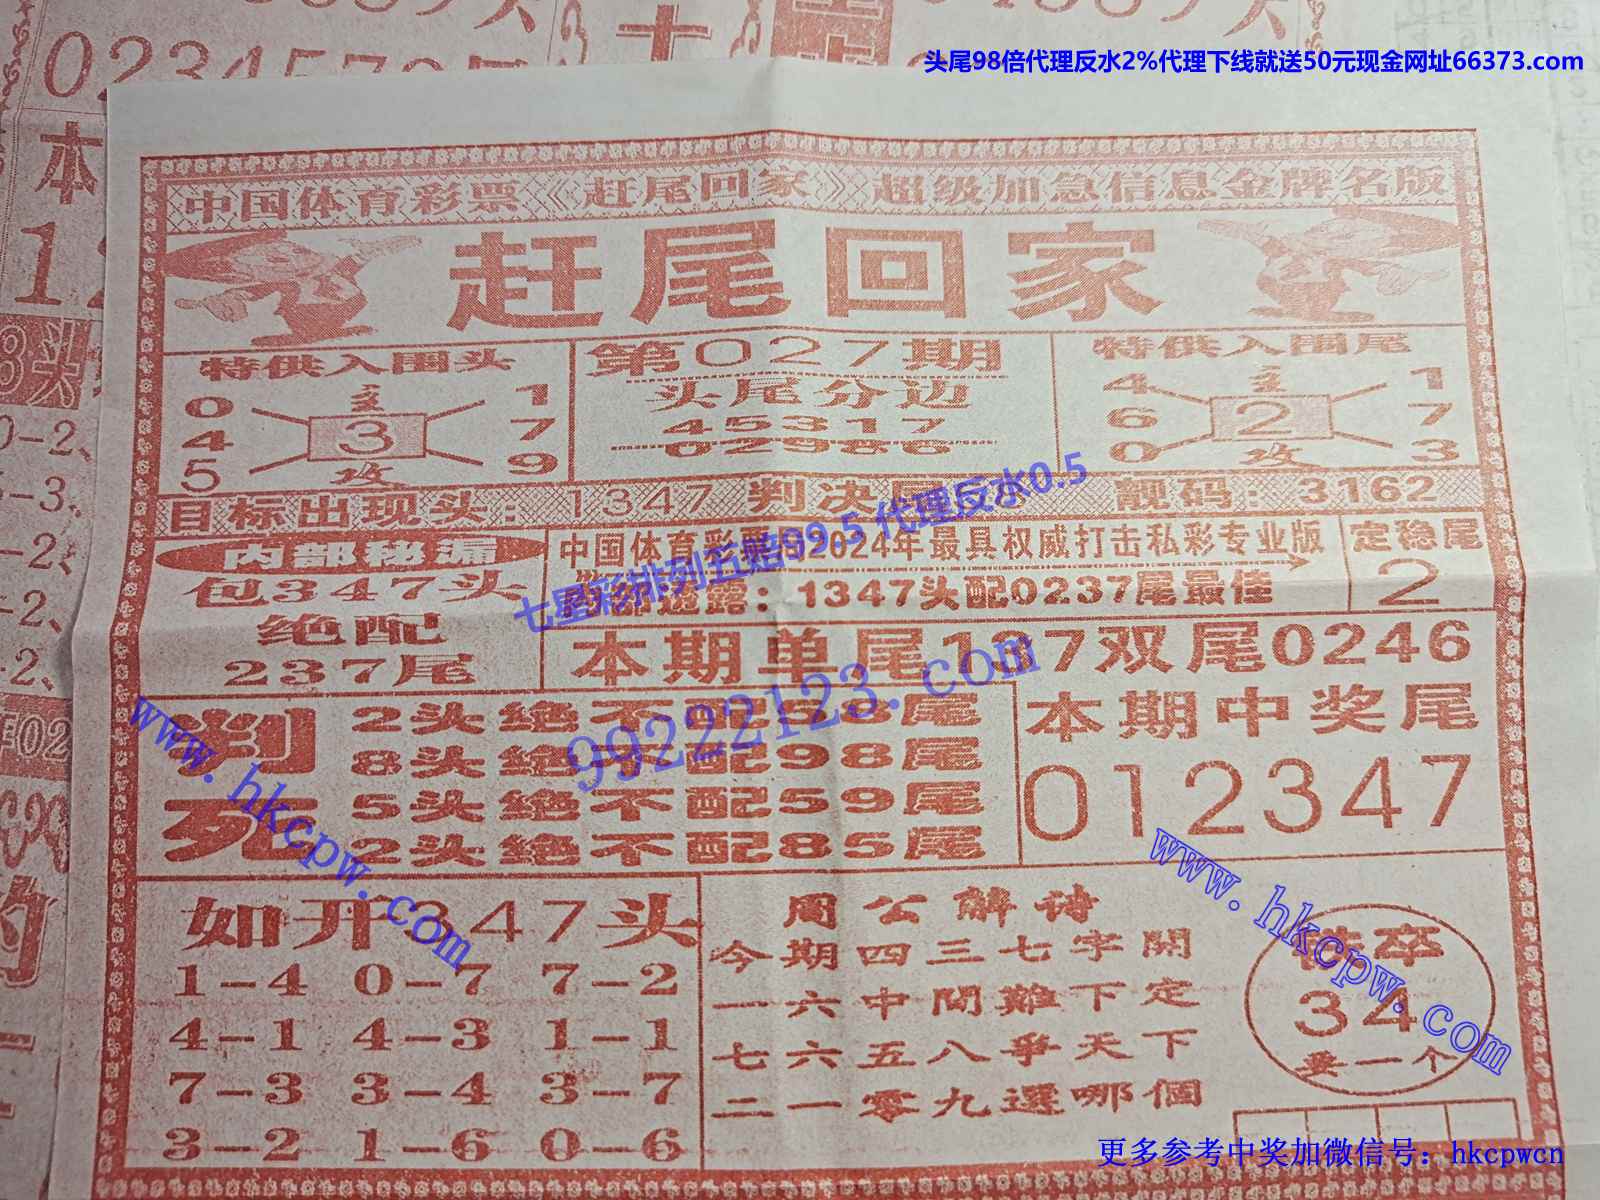 头尾98倍代理反水2%代理下线就送50元现金网址66373.com
中国体育彩票《赶尾回家》超级加急信息金牌名版
赶尾回家
特供入围头
0 主 1
4 3 7
5 攻 9
第027期
头尾分边
45317
02986
特供入围尾
4 主 1
6 2 7
0 攻 3
目标出现头：1347 判决尾
靓码：3162
七星彩排列五赔99.5 代理反水0.5
内部秘漏
包347头
绝配
237尾
2024年最具权威打击私彩专业版
透露：1347头配0237尾最佳
定稳尾
2
本期单尾137双尾0246
99222123.com
判死
2头绝不配58尾
8头绝不配98尾
5头绝不配59尾
2头绝不配85尾
本期中奖尾
012347
www.hkcpw.com
如开347头
1-4 0-7 7-2
4-1 4-3 1-1
7-3 3-4 3-7
3-2 1-6 0-6
周公解诗
今期四三七字開
一六中間難下定
七六五八爭天下
二一零九選哪個
www.hkcpw.com
34
要一个
更多参考中奖加微信号：hkcpwcn